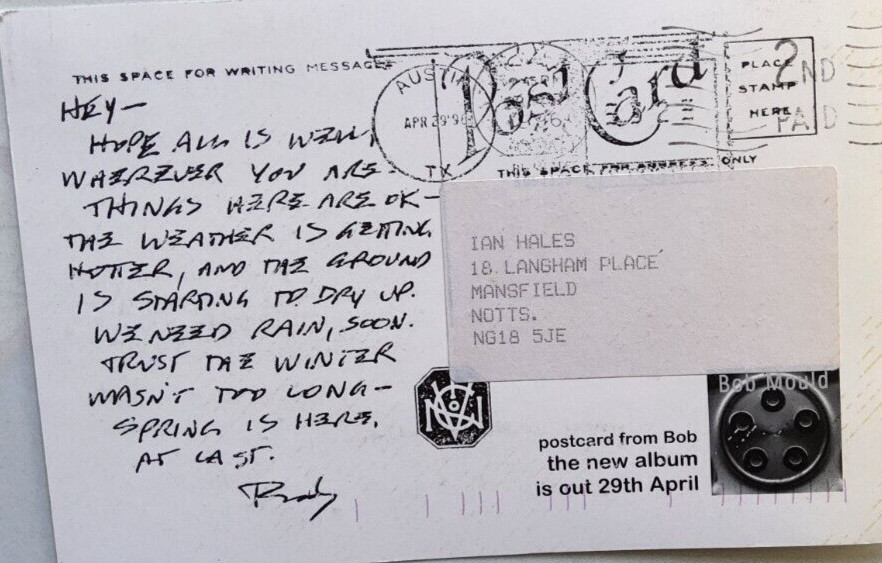 THIS SPACE FOR WRITING MESSAGES
Post Card
PLACE
STAMP
HERE
2ND
PAID
AUSTIN
APR 29'96
TX
THIS SPACE FOR ADDRESS ONLY
HEY—
HOPE ALL IS WELL,
WHEREVER YOU ARE—
THINGS HERE ARE OK—
THE WEATHER IS GETTING
HOTTER, AND THE GROUND
IS STARTING TO DRY UP.
WE NEED RAIN, SOON.
TRUST THE WINTER
WASN'T TOO LONG—
SPRING IS HERE,
AT LAST.
IAN HALES
18 LANGHAM PLACE
MANSFIELD
NOTTS.
NG18 5JE
Bob Mould
postcard from Bob
the new album
is out 29th April